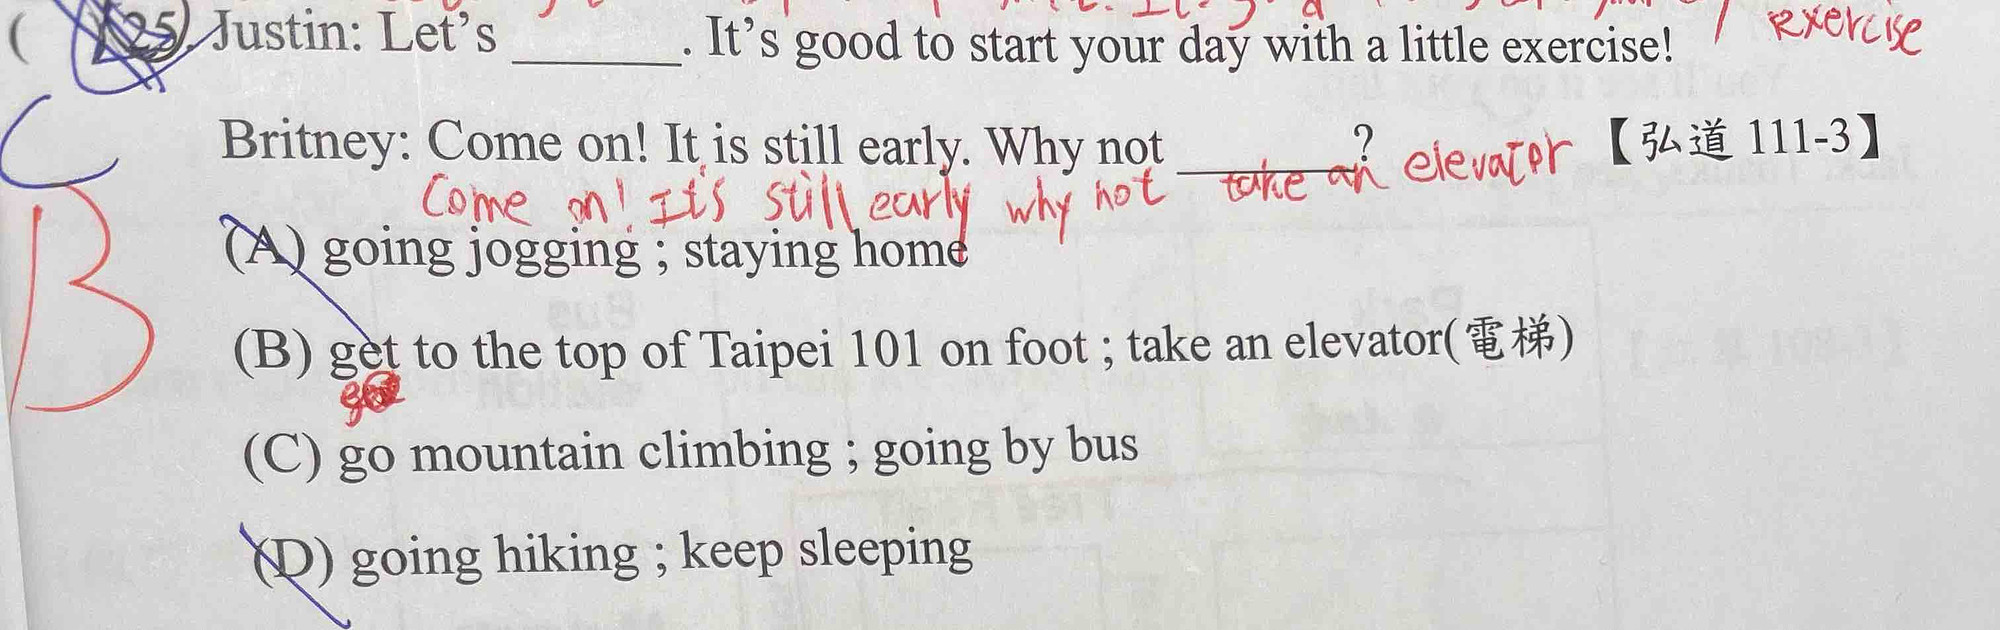 ( 25. Justin: Let's ______. It's good to start your day with a little exercise! / exercise
Britney: Come on! It is still early. Why not ______? 【弘道 111-3】
take an elevator
C
Come on! It's still early why not
B
(A) going jogging ; staying home
(B) get to the top of Taipei 101 on foot ; take an elevator(電梯)
(C) go mountain climbing ; going by bus
(D) going hiking ; keep sleeping